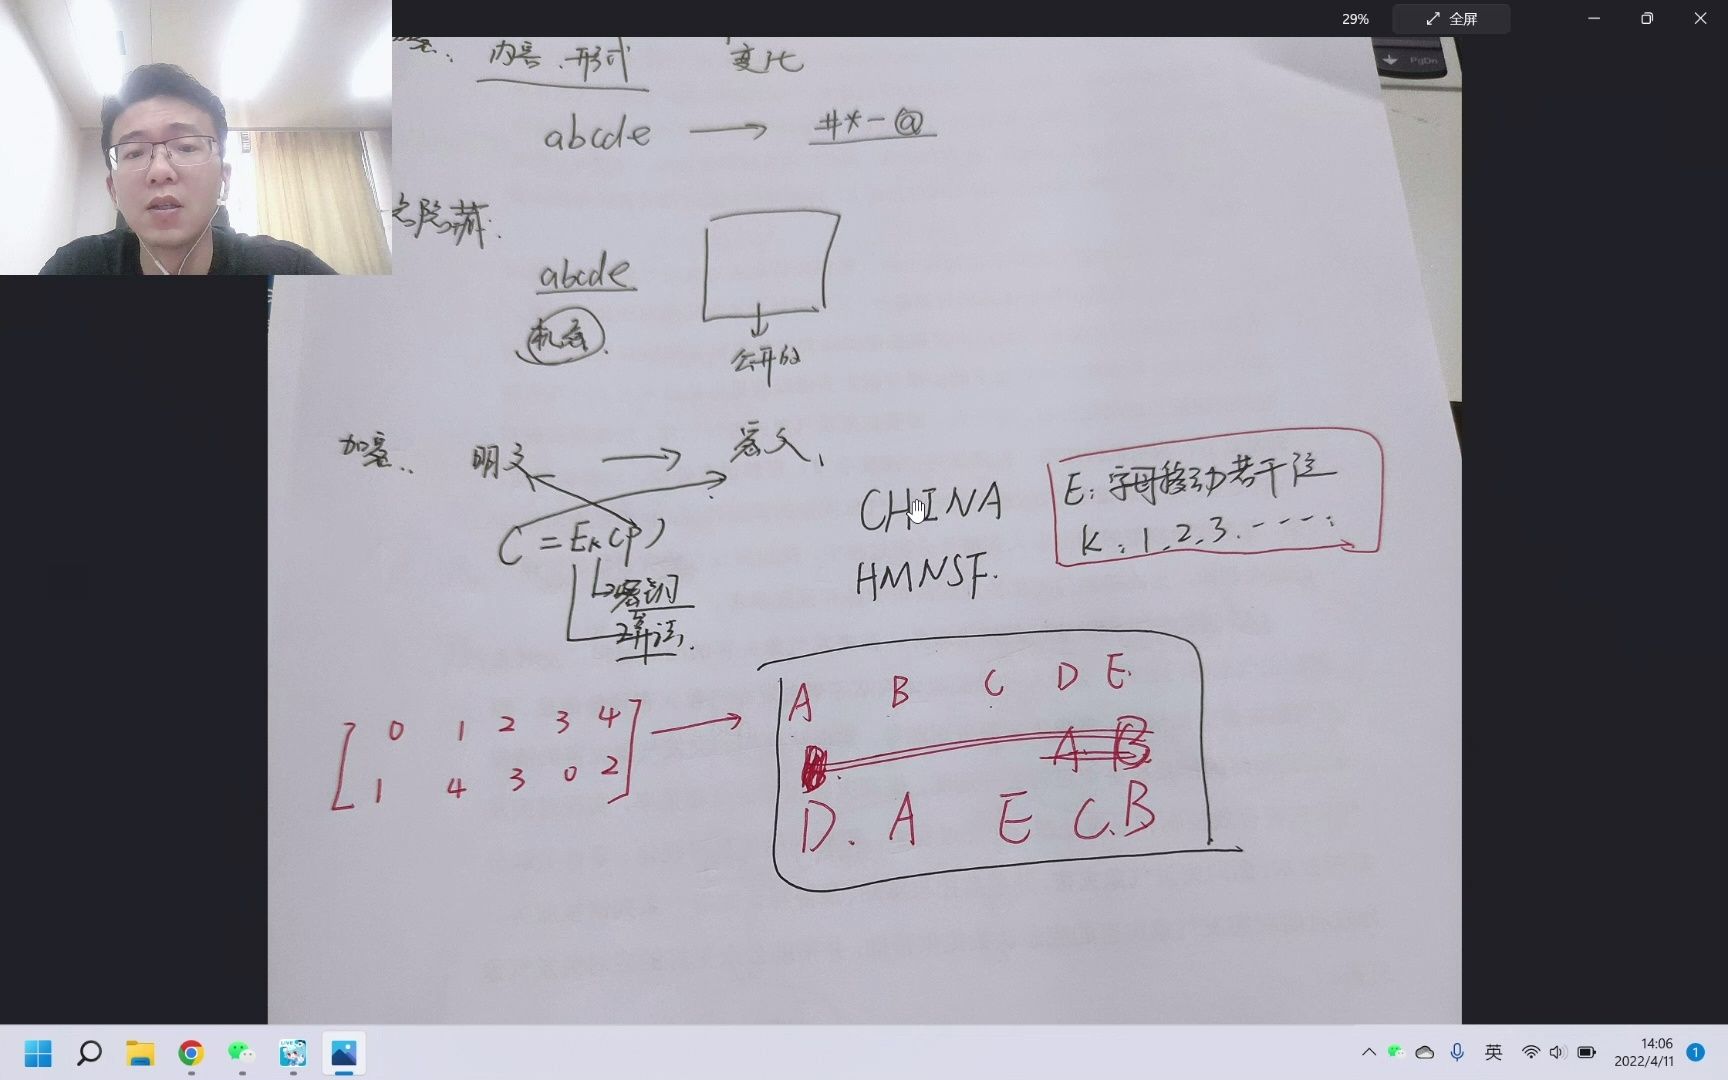 29%
全屏
PgDn
内容、形式 变化
abcde → #*-@
隐藏:
abcde
机密.
公开的
加密: 明文 → 密文、
C = Ek(P)
密钥
算法.
CHINA
HMNSF.
E: 字母移动若干位
K: 1, 2, 3. ----;
0 1 2 3 4
1 4 3 0 2
→
A B C D E.
A. B
D. A E C. B
英
14:06
2022/4/11
1